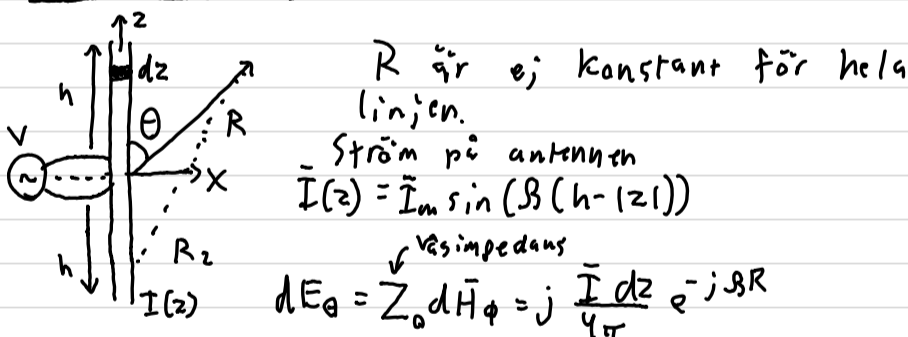 z
dz
h
θ
R
V
~
x
h
R₂
I(z)
R är ej konstant för hela
linjen.
Ström på antennen
Ī(z) = Īₘ sin(β(h-|z|))
Vågimpedans
dE_θ = Z₀ dH̄_ϕ = j (Ī dz)/(4π) e^(-jβR)